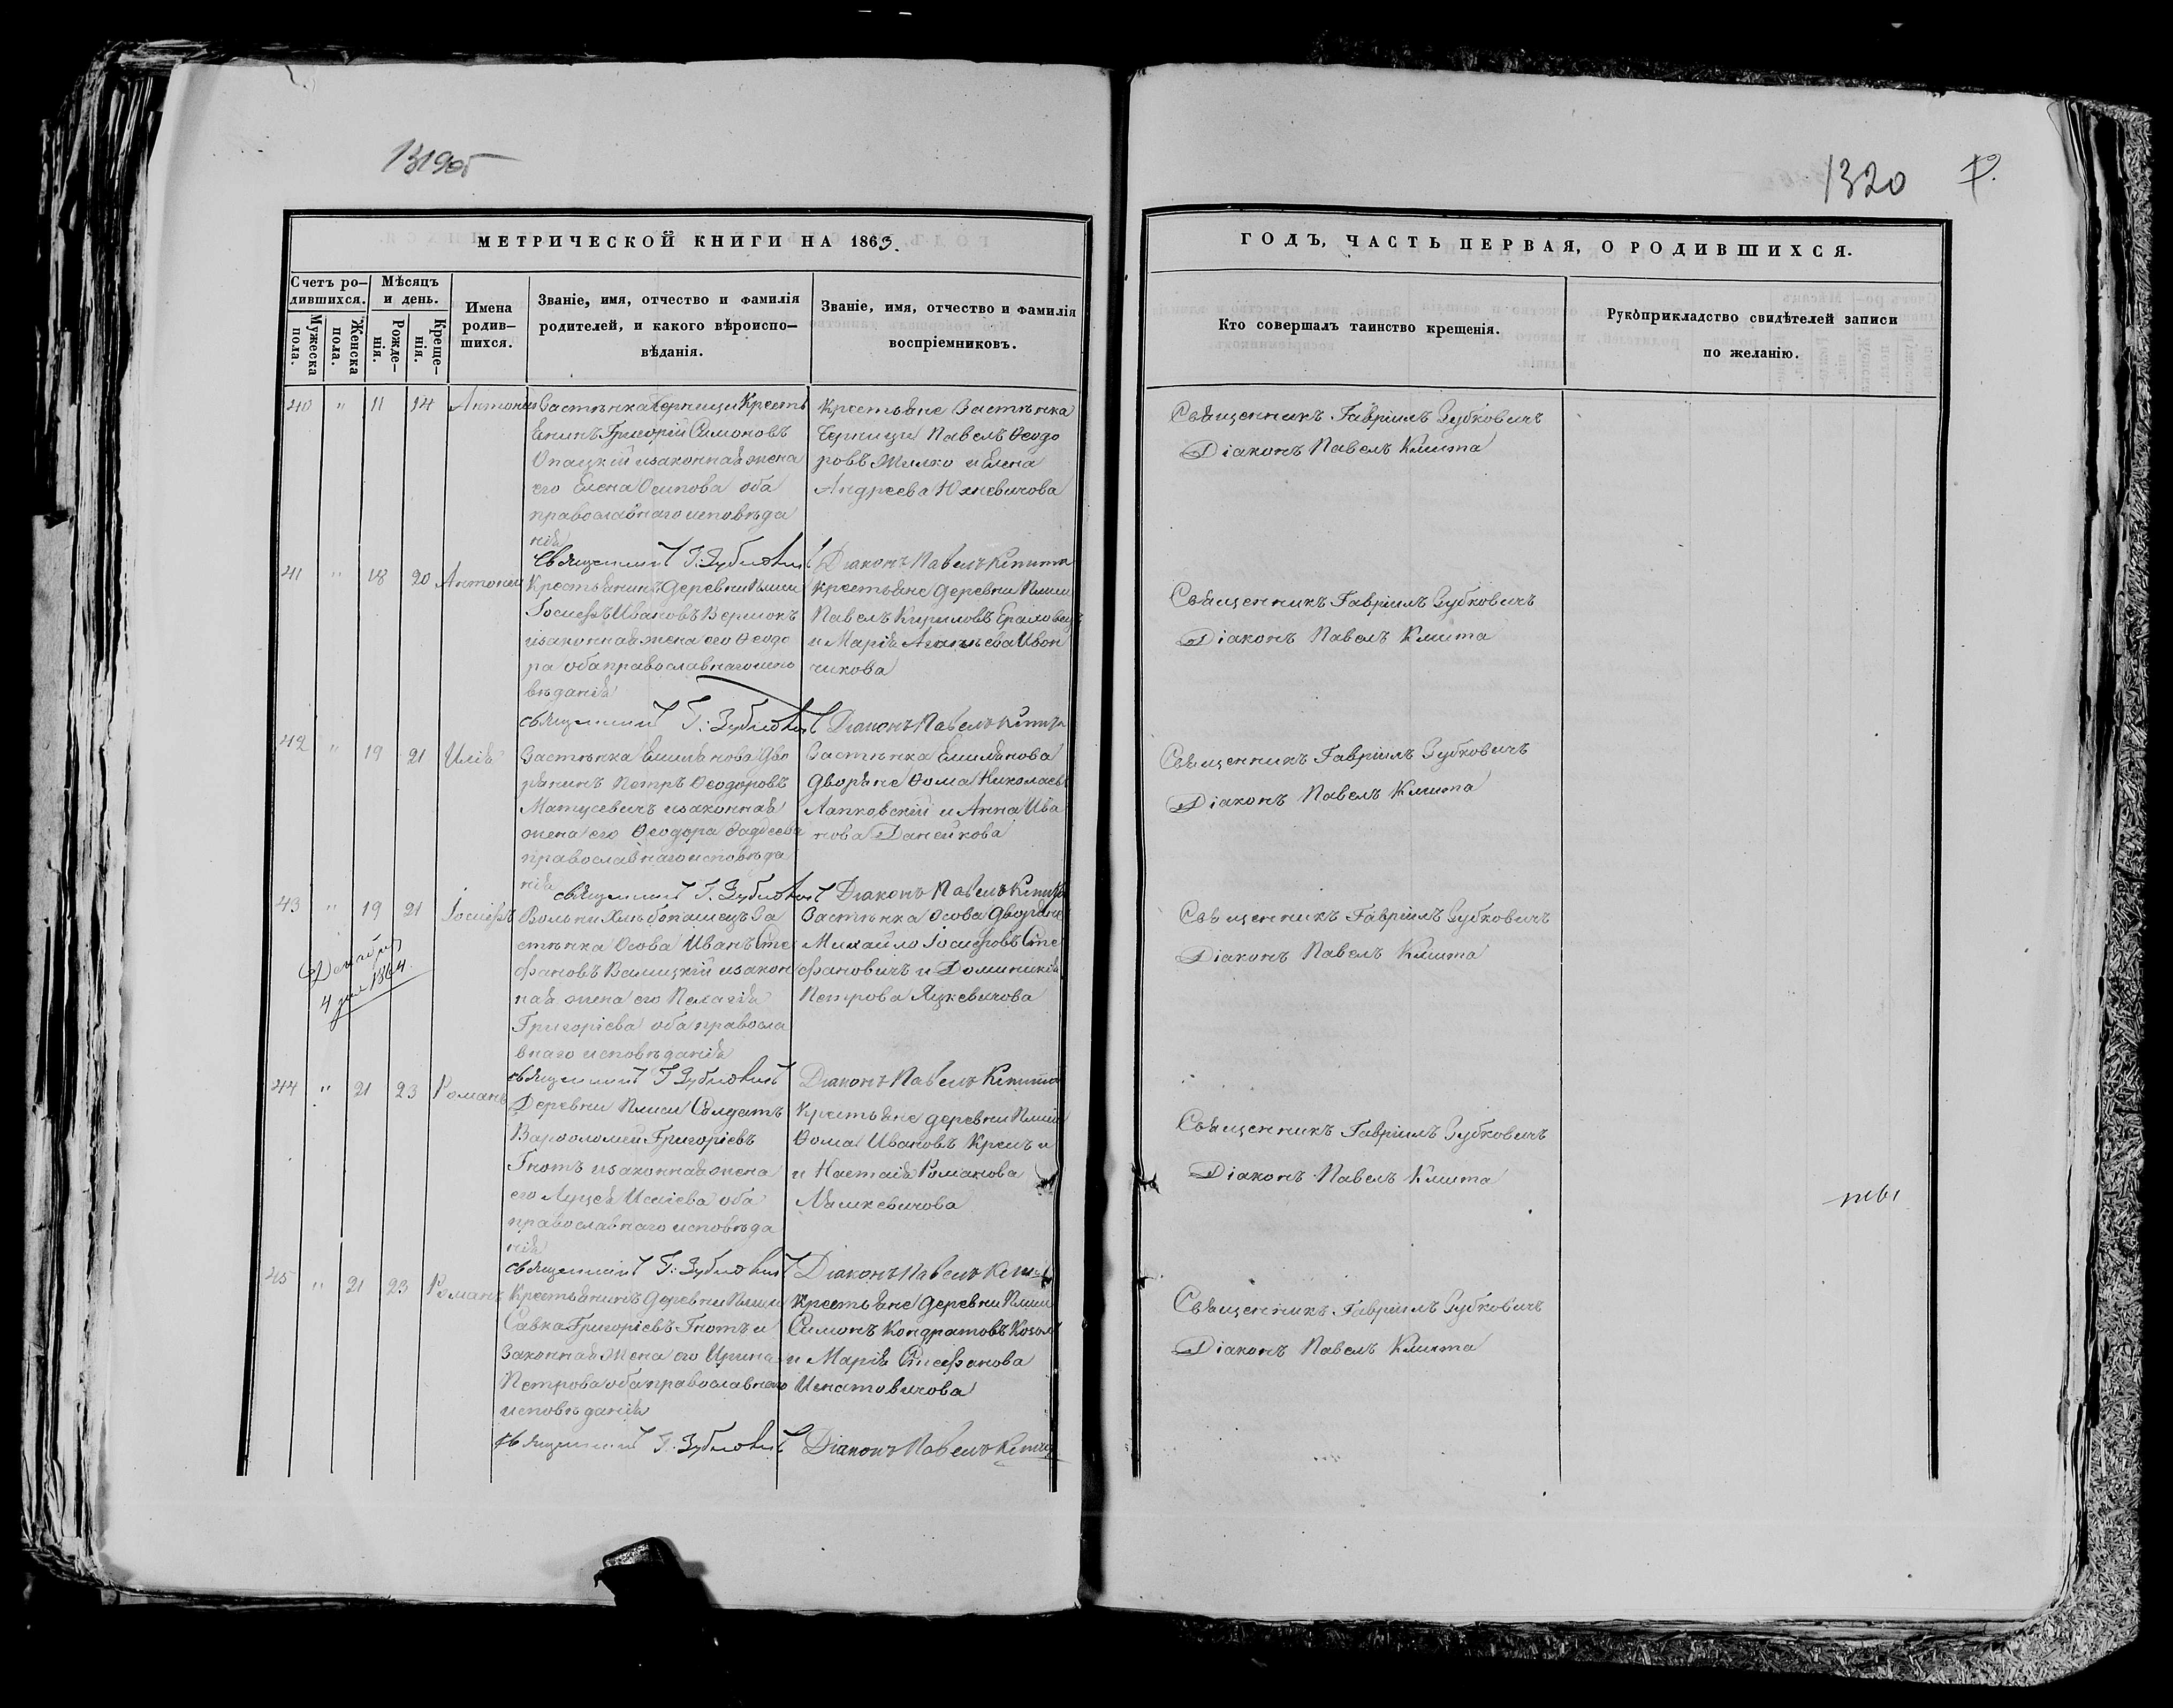 1319об
1320
МЕТРИЧЕСКОЙ КНИГИ НА 1863.
Счетъ ро-
дившихся.
Мѣсяцъ
и день.
Мужеска
пола.
Женска
пола.
Рожде-
нія.
Креще-
нія.
Имена
родив-
шихся.
Званіе, имя, отчество и фамилія
родителей, и какого вѣроиспо-
вѣданія.
Званіе, имя, отчество и фамилія
воспріемниковъ.
40 " 11 14 Антоній
Застѣнка Черници Кресть
янинъ Григорій Симоновъ
Опацкій и законная жена
его Елена Осипова оба
православнаго исповѣда
нія
Крестьяне Застѣнка
Черници Павелъ Ѳеодо
ровъ Жилко и Елена
Андреева Юхневичова
Священникъ Г. Зубковичъ Діаконъ Павелъ Кмита
41 " 18 20 Антоній
Крестьянинъ Деревни Плиси
Іосифъ Ивановъ
и законная жена его Ѳеодо
ра оба православнаго испо
вѣданія
Крестьяне Деревни Плиси
Павелъ Кириловъ
и Марія
чикова
Священникъ Г. Зубковичъ Діаконъ Павелъ Кмита
42 " 19 21 Илія
Застѣнка Емилянова Дво
рянинъ Петръ Ѳеодоровъ
Матусевичъ и законная
жена его Ѳеодора Фадѣева
православнаго исповѣда
нія
Застѣнка Емилянова
Дворяне Ѳома Николаевъ
Лапковскій и Анна Ива
нова Данейкова
Священникъ Г. Зубковичъ Діаконъ Павелъ Кмита
43 " 19 21 Іосифъ
Декабря
4 дня 1864.
Вольный Хлѣбопашецъ За
стѣнка Осова Иванъ Сте
фановъ Валицкій и закон
ная жена его Пелагія
Григоріева оба правосла
внаго исповѣданія
Застѣнка Осова Дворяне
Михайло Іосифовъ Сте
фановичъ и Доминикія
Петрова Яцкевичова
Священникъ Г. Зубковичъ Діаконъ Павелъ Кмита
44 " 21 23 Романъ
Деревни Плиси Солдатъ
Варфоломей Григоріевъ
Гнотъ и законная жена
его Луція Исаіева оба
православнаго исповѣда
нія
Крестьяне деревни Плиси
Ѳома Ивановъ и
и Настасія Романова
Машкевичова
Священникъ Г. Зубковичъ Діаконъ Павелъ Кмита
45 " 21 23 Романъ
Крестьянинъ Деревни Плиси
Савка Григоріевъ Гнотъ и
законная жена его Ирина
Петрова оба православнаго
исповѣданія
Крестьяне Деревни Плиси
Симонъ Кондратовъ Козелъ
и Марія Стефанова
Игнатовичова
Священникъ Г. Зубковичъ Діаконъ Павелъ Кмита
ГОДЪ, ЧАСТЬ ПЕРВАЯ, О РОДИВШИХСЯ.
Кто совершалъ таинство крещенія.
Рукоприкладство свидѣтелей записи
по желанію.
Священникъ Гавріилъ Зубковичъ
Діаконъ Павелъ Кмита
Священникъ Гавріилъ Зубковичъ
Діаконъ Павелъ Кмита
Священникъ Гавріилъ Зубковичъ
Діаконъ Павелъ Кмита
Священникъ Гавріилъ Зубковичъ
Діаконъ Павелъ Кмита
Священникъ Гавріилъ Зубковичъ
Діаконъ Павелъ Кмита
Священникъ Гавріилъ Зубковичъ
Діаконъ Павелъ Кмита